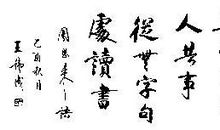 人共事
從無字句
處讀書
周恩來之語
乙酉秋月